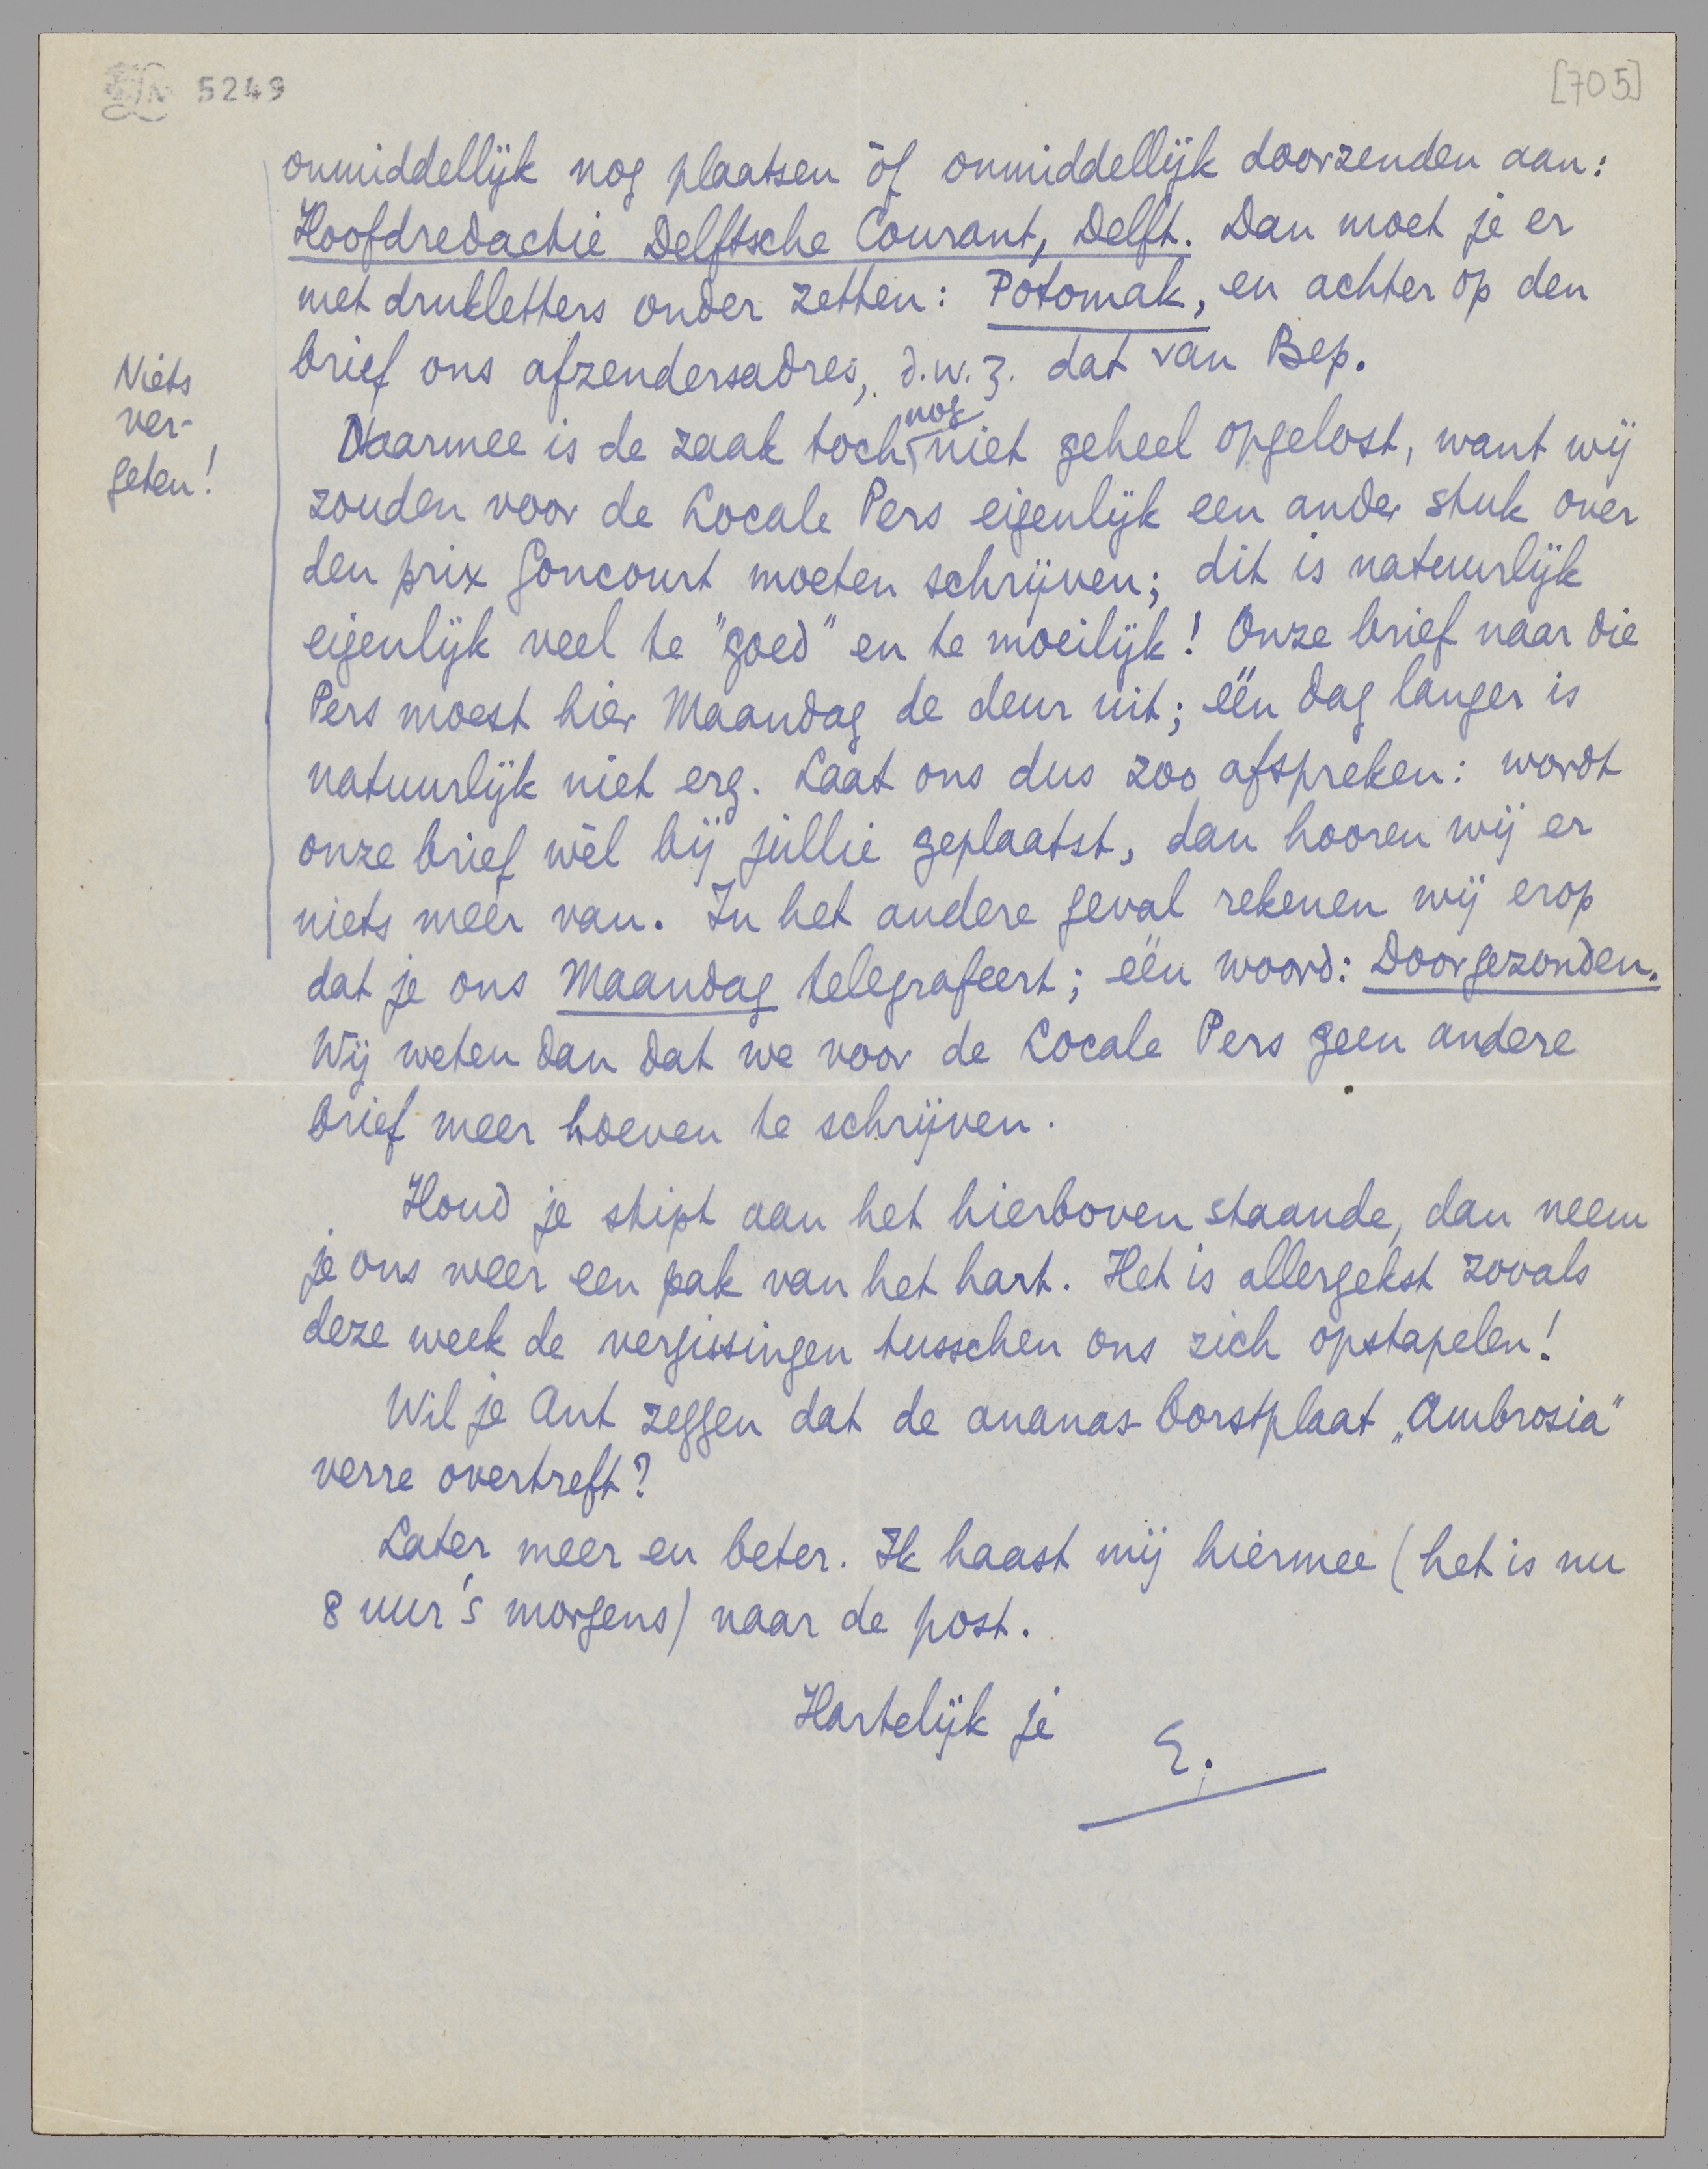 5249
[705]
onmiddellijk nog plaatsen òf onmiddellijk doorzenden aan:
Hoofdredactie Delftsche Courant, Delft. Dan moet je er
met drukletters onder zetten: Potomak, en achter op den
brief ons afzendersadres, d.w.z. dat van Bep.
Niets
ver-
geten!
Daarmee is de zaak toch nog niet geheel opgelost, want wij
zouden voor de Locale Pers eigenlijk een ander stuk over
den prix Goncourt moeten schrijven; dit is natuurlijk
eigenlijk veel te "goed" en te moeilijk! Onze brief naar die
Pers moest hier Maandag de deur uit; één dag langer is
natuurlijk niet erg. Laat ons dus zoo afspreken: wordt
onze brief wèl bij jullie geplaatst, dan hooren wij er
niets meer van. In het andere geval rekenen wij erop
dat je ons Maandag telegrafeert; één woord: Doorgezonden.
Wij weten dan dat we voor de Locale Pers geen andere
brief meer hoeven te schrijven.
Houd je stipt aan het hierboven staande, dan neem
je ons weer een pak van het hart. Het is allergekst zooals
deze week de vergissingen tusschen ons zich opstapelen!
Wil je Ant zeggen dat de ananas-borstplaat „Ambrosia"
verre overtreft?
Later meer en beter. Ik haast mij hiermee (het is nu
8 uur 's morgens) naar de post.
Hartelijk je
E.